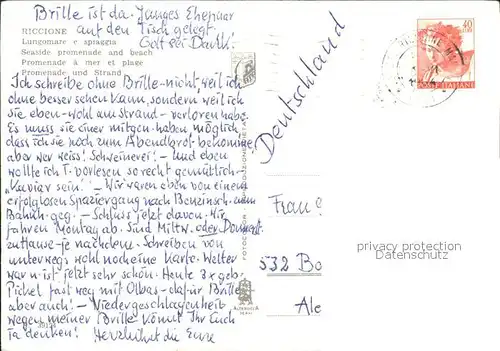 Brille ist da. Junges Ehepaar
auf den Tisch gelegt.
Gott sei Dank!
RICCIONE
Lungomare e spiaggia
Seaside promenade and beach
Promenade à mer et plage
Promenade und Strand
Ich schreibe ohne Brille - nicht, weil ich
ohne besser sehen kann, sondern weil ich
sie eben - wohl am Strand - verloren habe.
Es muss sie einer mitgen. haben, möglich
dass ich sie noch zum Abendbrot bekomme,
aber wer weiss! Schweinerei! - Und eben
wollte ich T. vorlesen so recht gemütlich
"Kaviar sein". - Wir waren eben von einem
erfolglosen Spaziergang nach Benzinsch. zum
Bahnh. geg. - Schluss jetzt davon. Wir
fahren Montag ab. Sind Mittw. oder Donnerst.
zuhause, je nachdem. Schreiben von
unterwegs wohl noch eine Karte. Wetter
war u. ist jetzt sehr schön. Heute 3x geb.
Pickel fast weg mit Olbas - dafür Brille
aber auch! - Niedergeschlagenheit
wegen meiner Brille könnt Ihr Euch
ja denken! Herzlichst die Eure
Deutschland
Frau
532 Bo
Ale
40
ITALIANE
privacy protection
Datenschutz